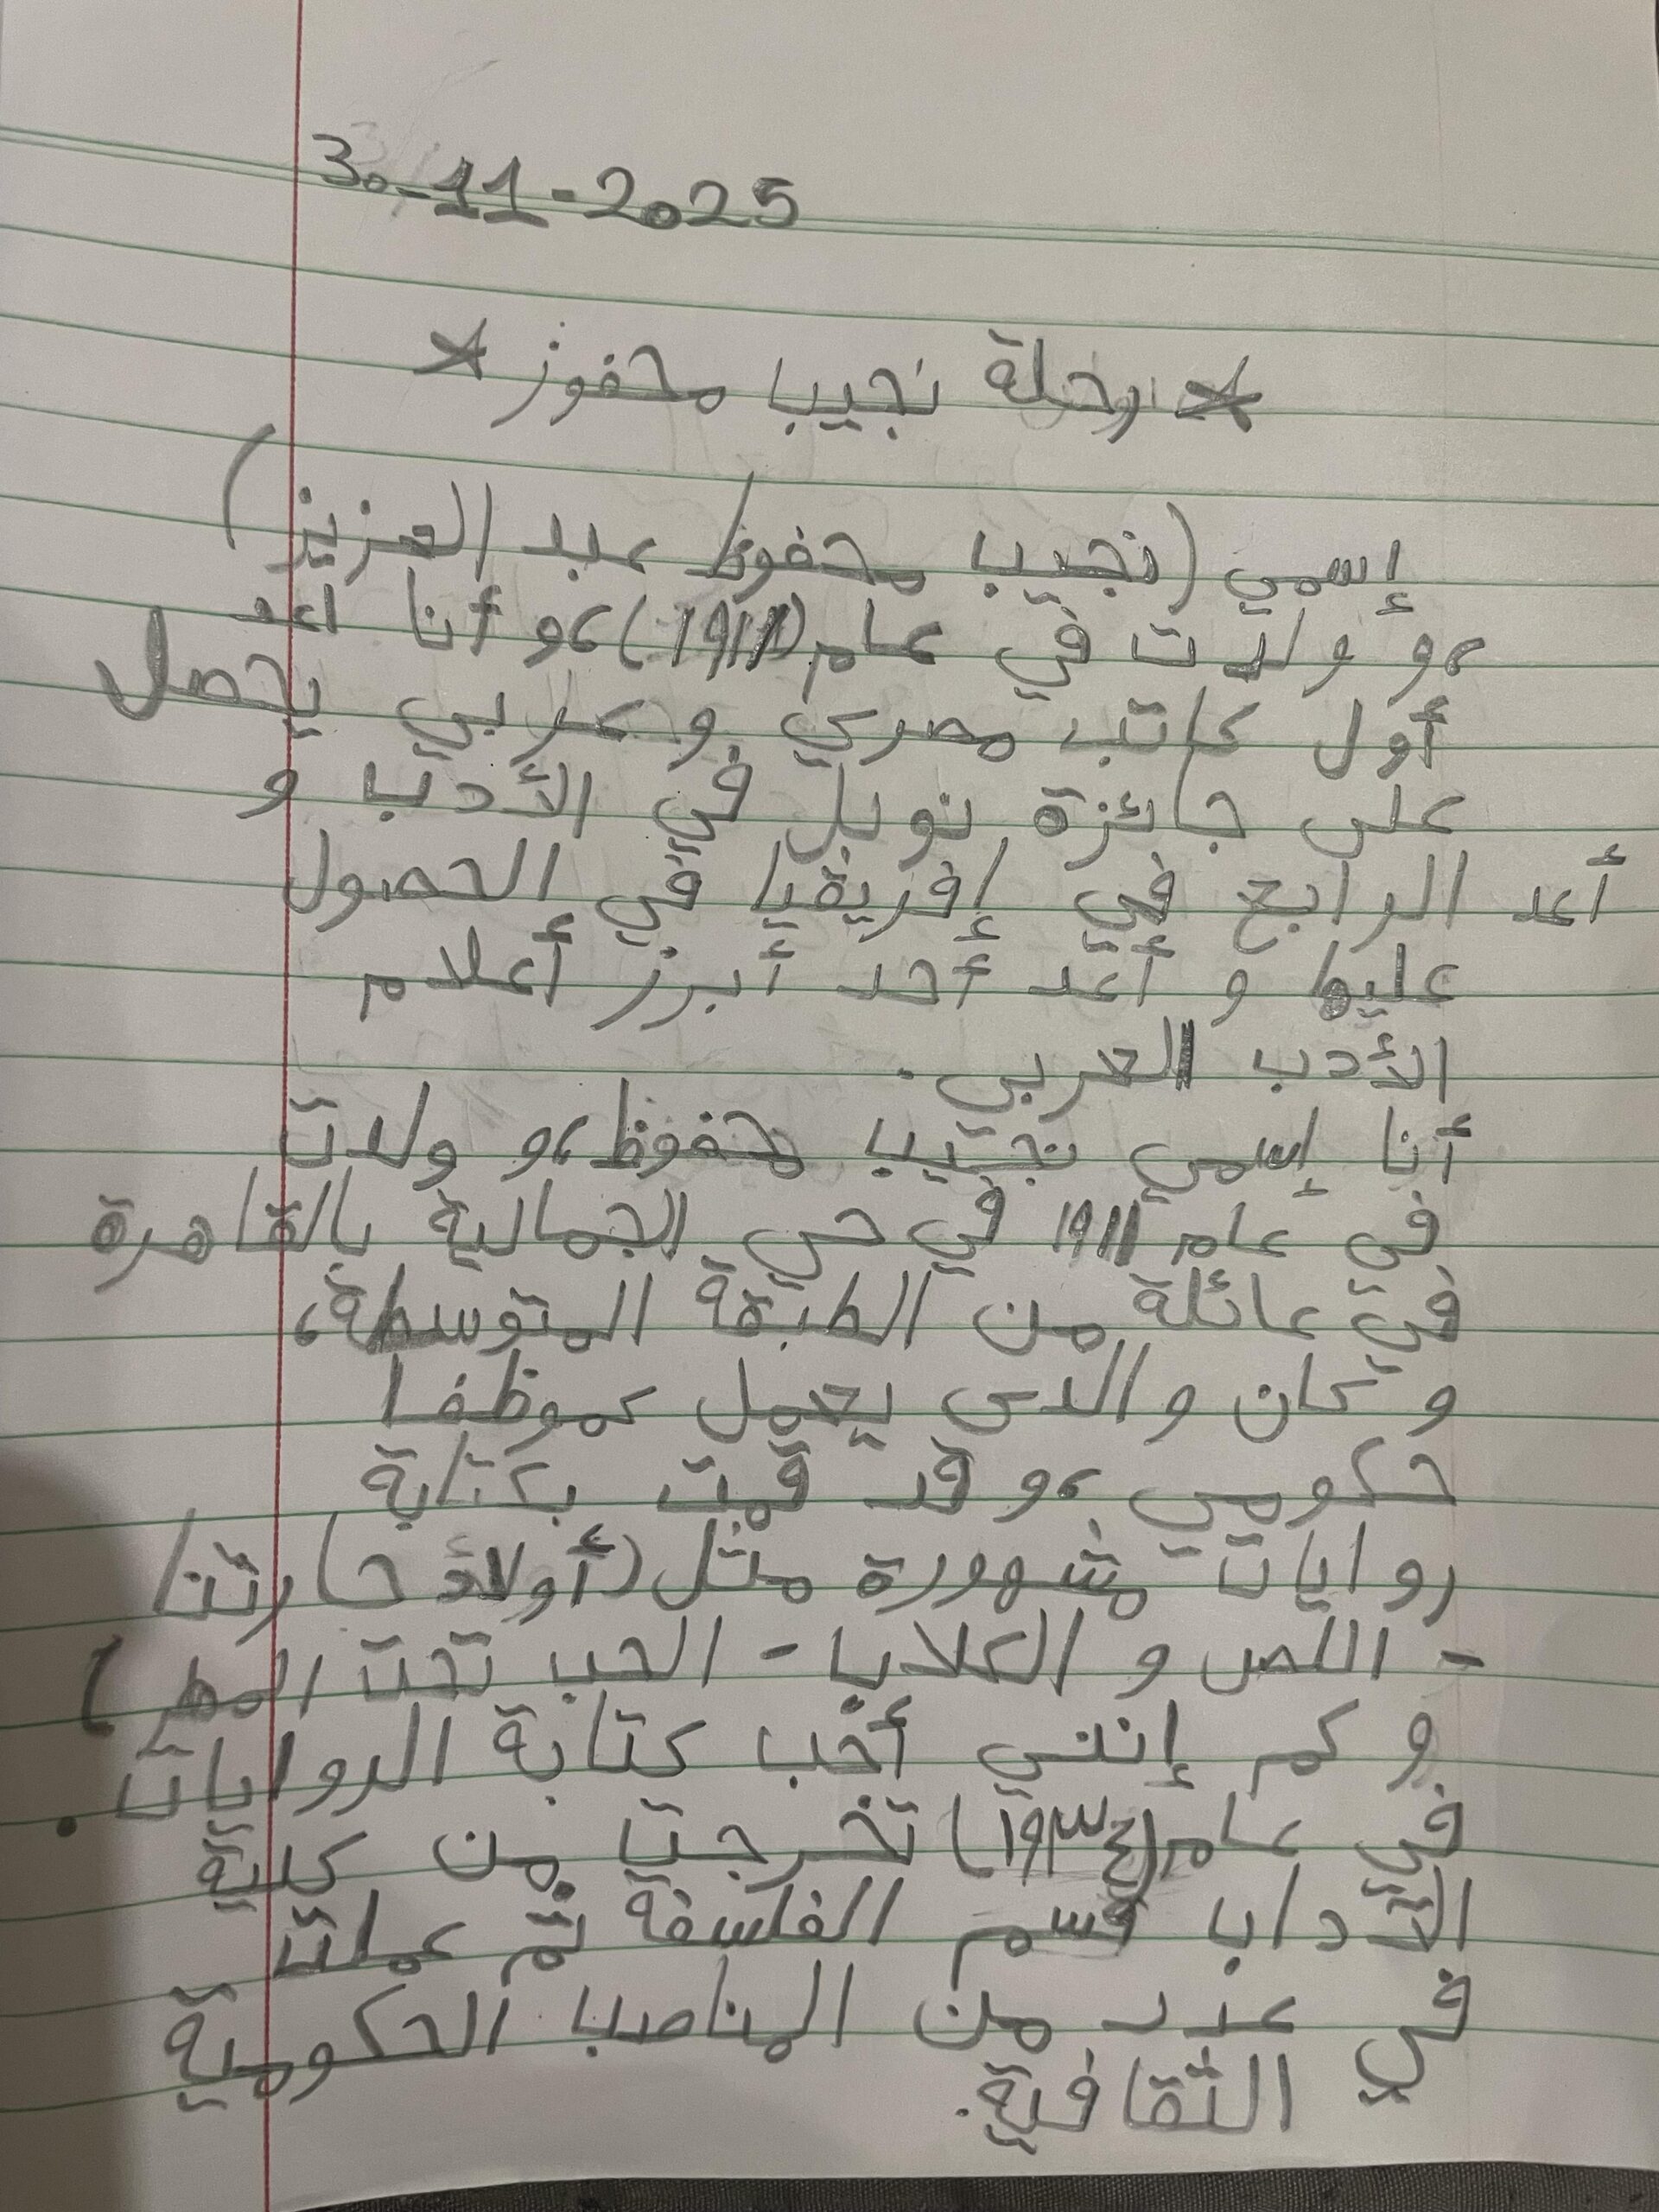 30-11-2025
* رحلة نجيب محفوز *
إسمي (نجيب محفوظ عبد العزيز)
،و ولدت في عام (1911)،و أنا اعد
أول كاتب مصري و عربي يحصل
على جائزة نوبل في الأدب و
أعد الرابع في إفريقيا في الحصول
عليها و أعد أحد أبرز أعلام
الأدب العربي.
أنا إسمي نجيب محفوظ،و ولدت
في عام 1911 في حي الجمالية بالقاهرة
في عائلة من الطبقة المتوسطة،
و كان والدى يعمل كموظفا
حكومي ،و قد قمت بكتابة
روايات مشهورة مثل (أولاد حارتنا
- اللص و الكلاب - الحب تحت المطر)
و كم إنني أحب كتابة الروايات.
في عام (١٩٣٤) تخرجت من كلية
الآداب قسم الفلسفة ثم عملت
في عدد من المناصب الحكومية
الثقافية.